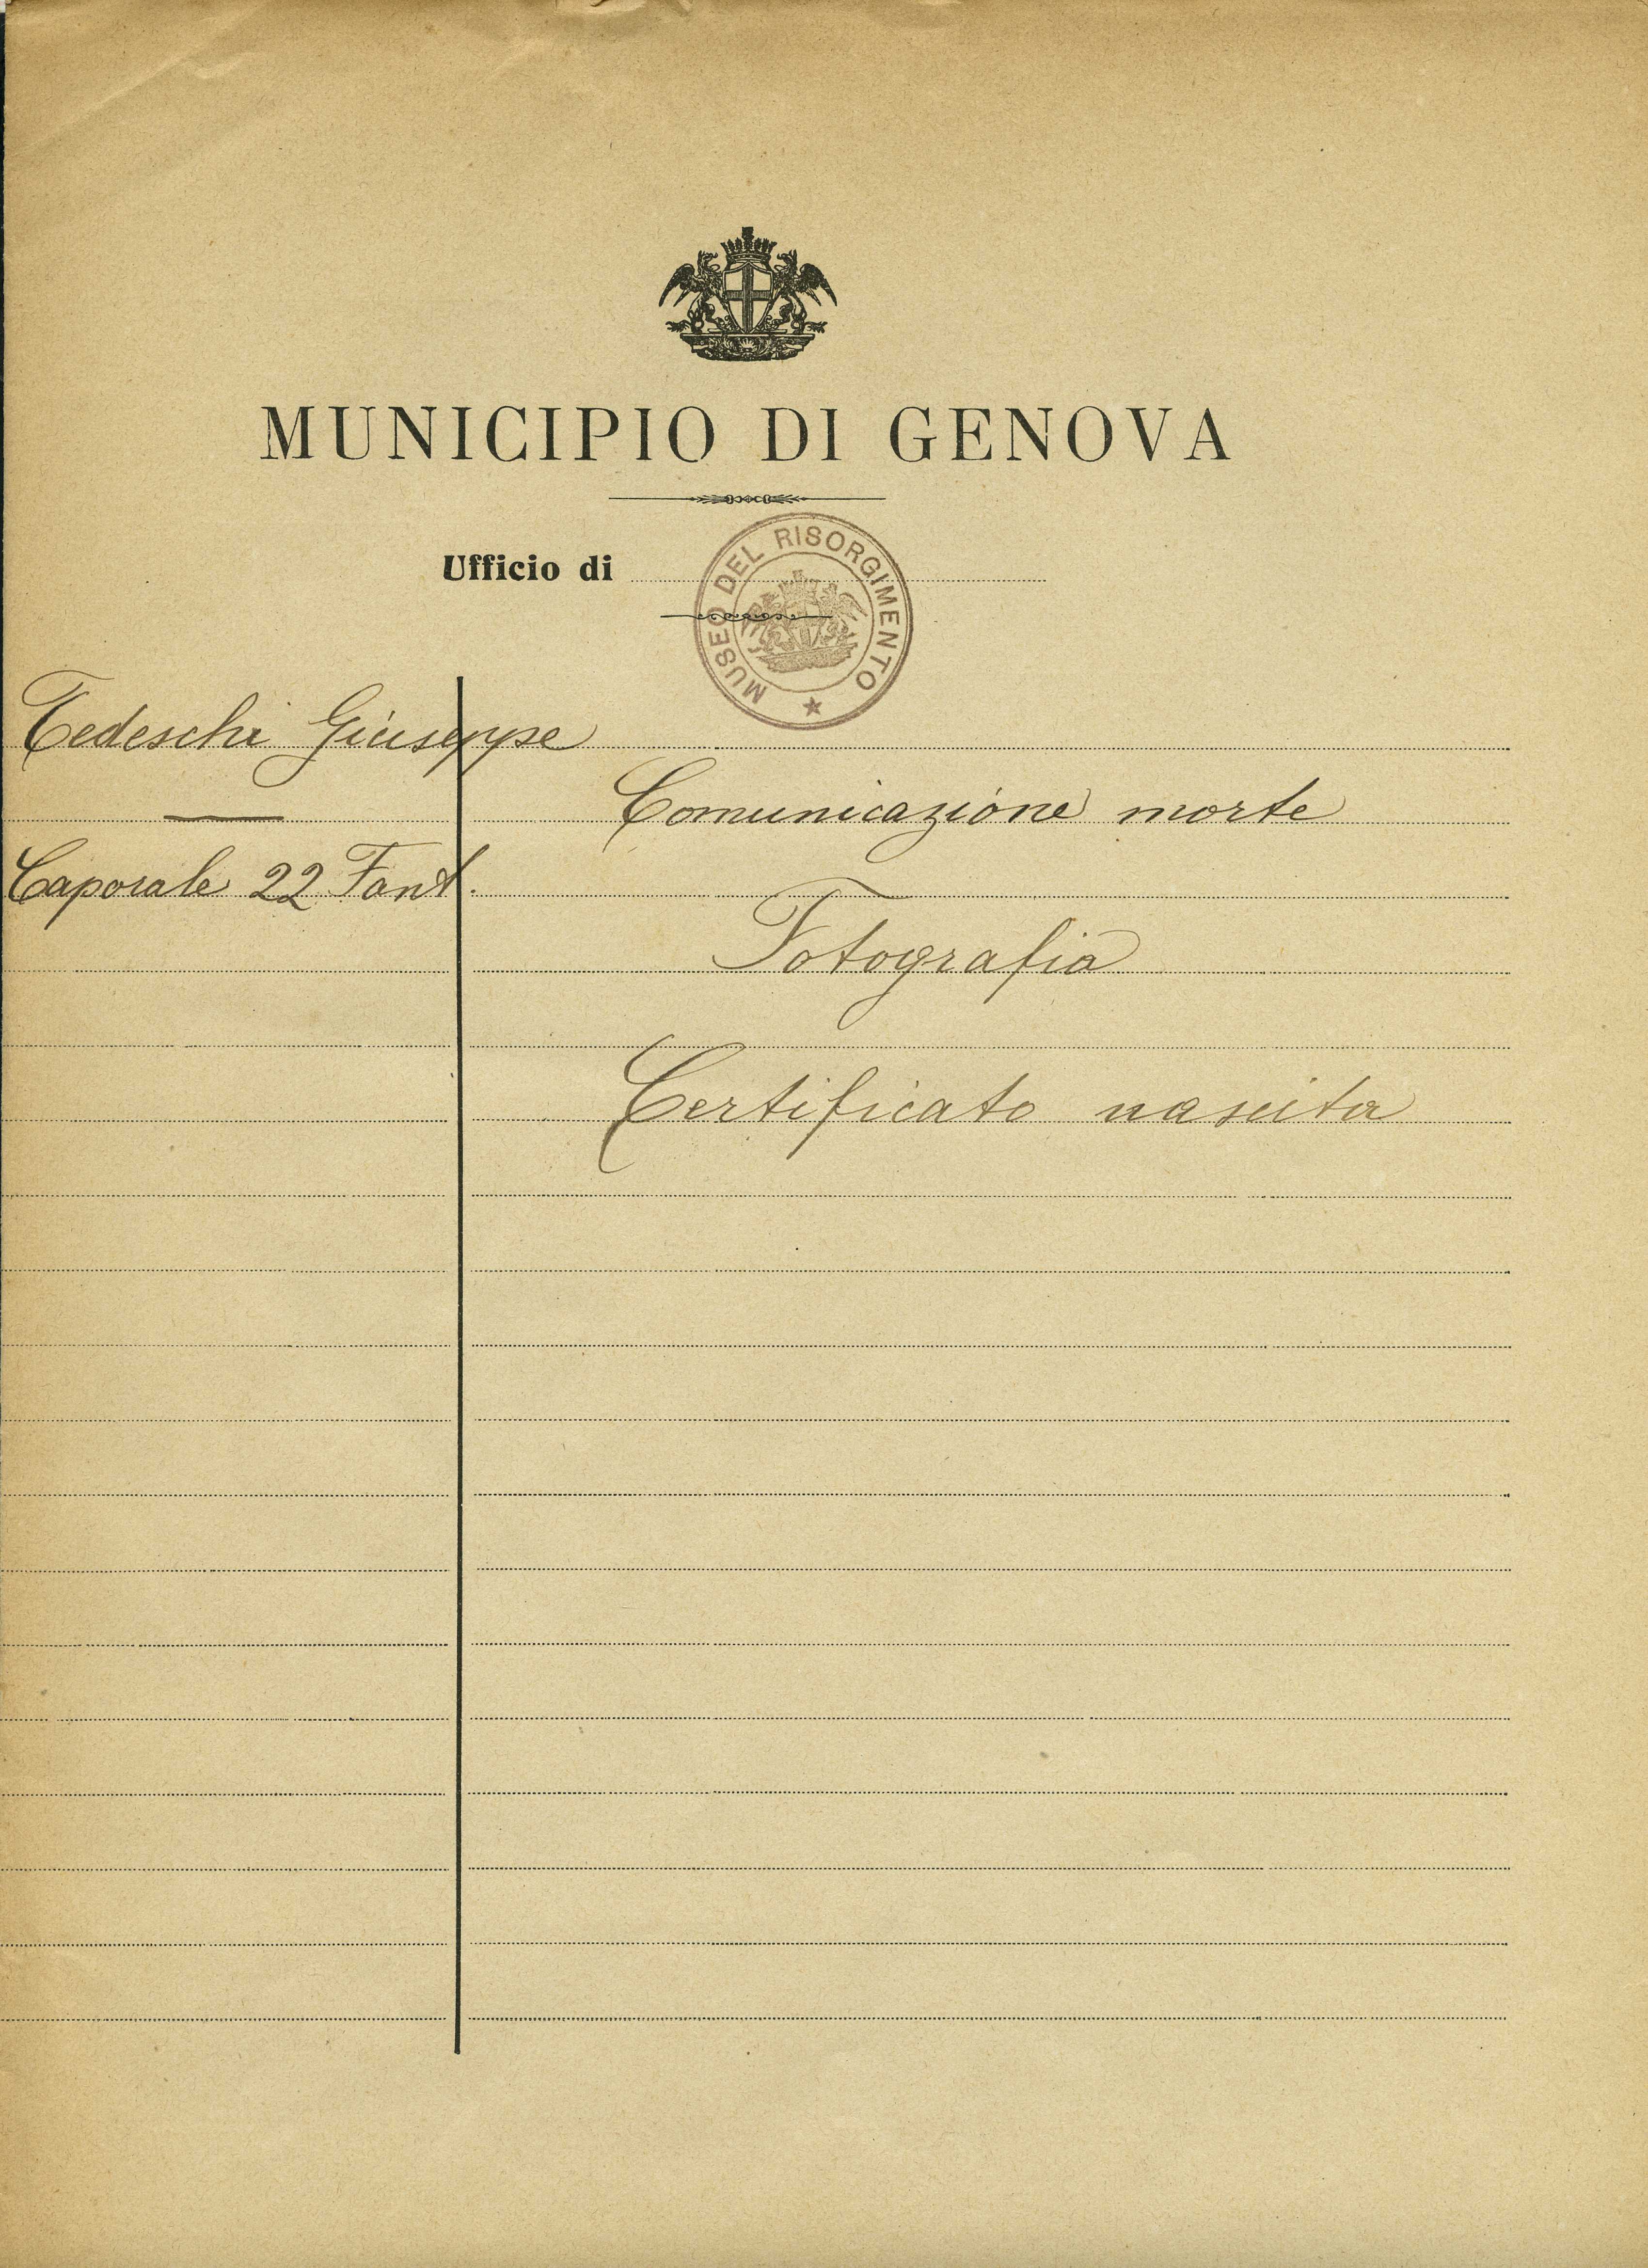 MUNICIPIO DI GENOVA
Ufficio di
MUSEO DEL RISORGIMENTO
Tedeschi Giuseppe
Comunicazione morte
Caporale 22 Fant.
Fotografia
Certificato nascita